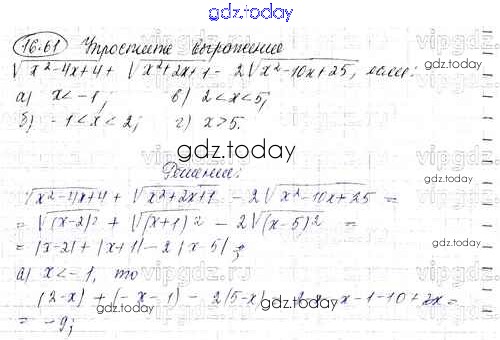 gdz.today
16.61 Упростите выражение
√x²-4x+4 + √x²+2x+1 - 2√x²-10x+25, если:
а) x<-1; в) 2<x<5;
б) -1<x<2; г) x>5.
gdz.today
Решение:
√x²-4x+4 + √x²+2x+1 - 2√x²-10x+25 =
= √(x-2)² + √(x+1)² - 2√(x-5)² =
= |x-2| + |x+1| - 2|x-5|;
а) x<-1, то
(2-x) + (-x-1) - 2(5-x) = 2-x-x-1-10+2x =
= -9;
gdz.today